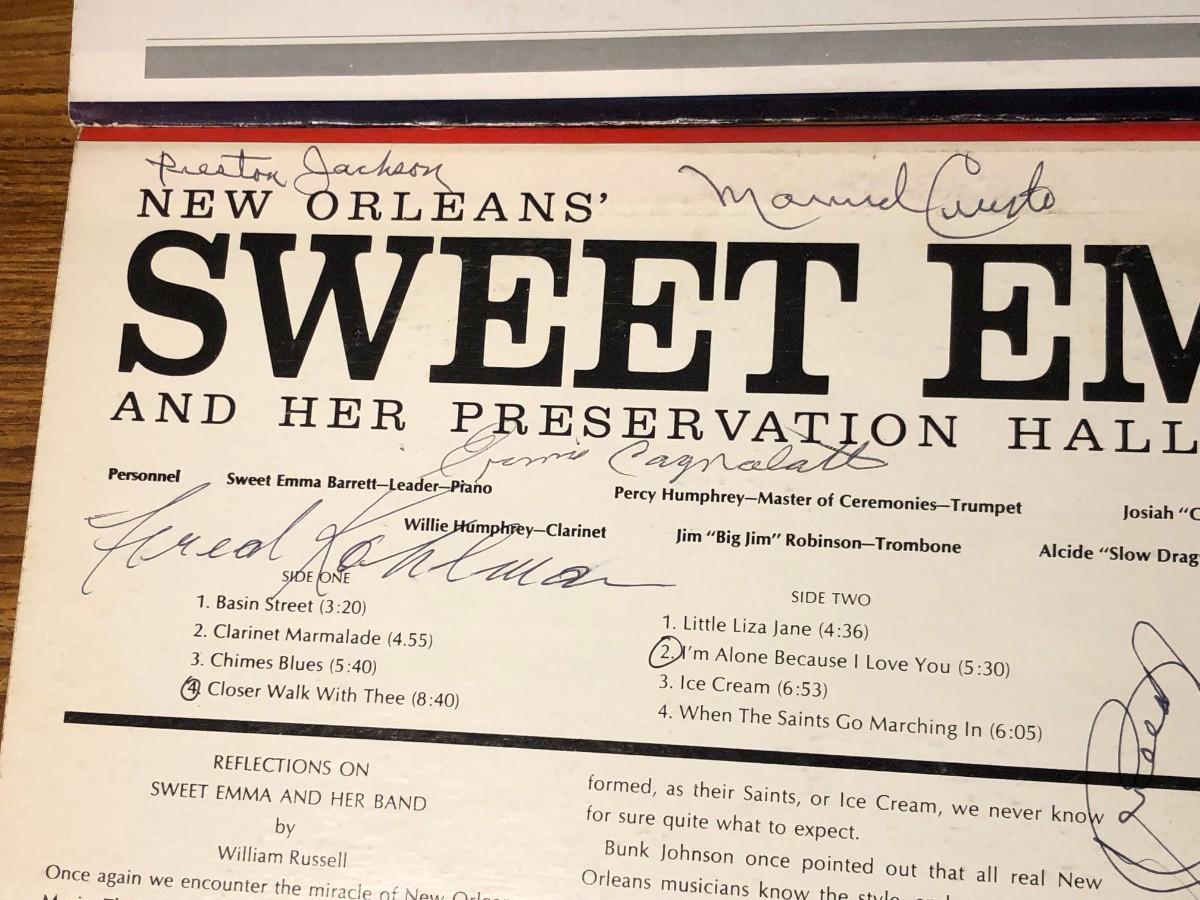 Preston Jackson
Manuel Crusto
NEW ORLEANS'
SWEET EM
AND HER PRESERVATION HALL
Ernie Cagnolatti
Personnel Sweet Emma Barrett—Leader—Piano Percy Humphrey—Master of Ceremonies—Trumpet Josiah "C
Willie Humphrey—Clarinet Jim "Big Jim" Robinson—Trombone Alcide "Slow Drag
Fred Kohlman
SIDE ONE
1. Basin Street (3:20)
2. Clarinet Marmalade (4.55)
3. Chimes Blues (5:40)
4. Closer Walk With Thee (8:40)
SIDE TWO
1. Little Liza Jane (4:36)
2. I'm Alone Because I Love You (5:30)
3. Ice Cream (6:53)
4. When The Saints Go Marching In (6:05)
REFLECTIONS ON
SWEET EMMA AND HER BAND
by
William Russell
Once again we encounter the miracle of New Orlea
formed, as their Saints, or Ice Cream, we never know
for sure quite what to expect.
Bunk Johnson once pointed out that all real New
Orleans musicians know the style